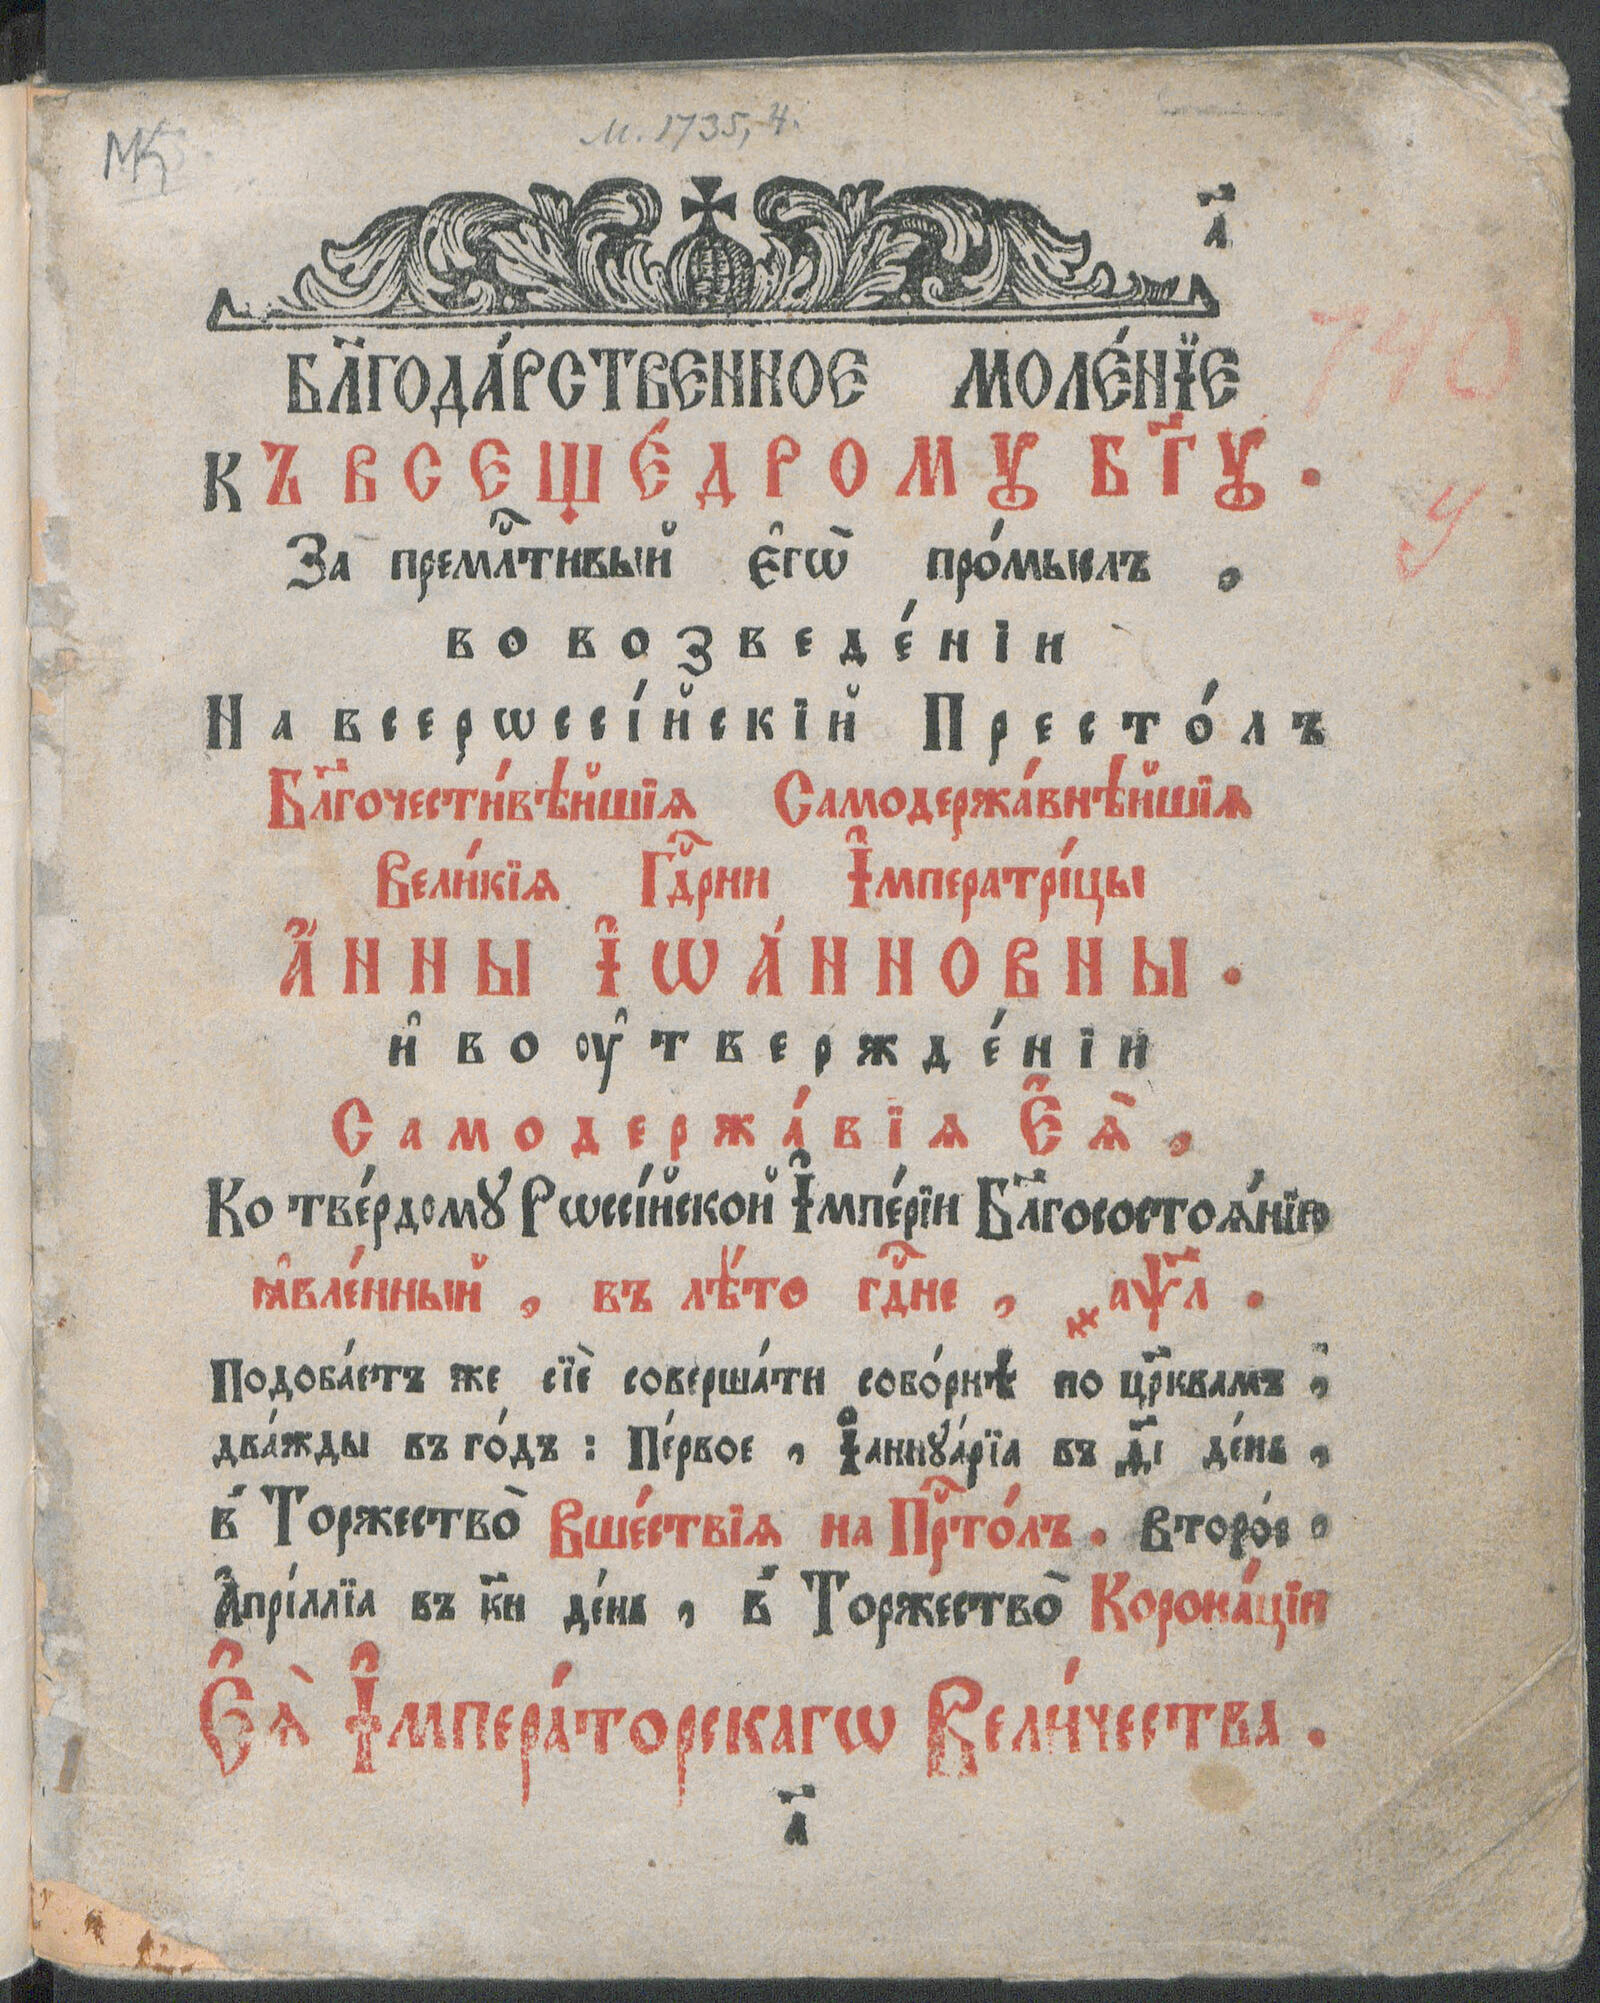 М. 1735, 4.
МК
а҃
БЛ҃ГОДА́РСТВЕННОЕ МОЛЕ́НЇЕ
КЪ ВСЕЩЕ́ДРОМꙊ БГ҃Ꙋ.
За̀ премлⷭ҇тивый є҆гѡ̀ про́мыслъ ,
во возведе́нїи
На всерѡссі́йскїй Престо́лъ
Бл҃гочести́вѣйшїѧ Самодержа́внѣйшїѧ
Вели́кїѧ Гдⷭ҇рни І҆мператрі́цы
А҆́ННЫ І҆ѠА́ННОВНЫ.
и҆ во ᲂу҆твержде́нїи
Самодержа́вїѧ Є҆ѧ̀ ,
Ко тве́рдомꙋ Рѡссі́йской І҆мпе́рїи Бл҃госостоѧ́нїю
ꙗ҆вле́нный , въ лѣ́то гдⷭ҇не , ҂аѱ҃л .
Подоба́етъ же сїѐ соверша́ти собо́рнѣ по цр҃квамъ ,
два́жды въ го́дъ : Пе́рвое , І҆аннꙋа́рїа въ д҃і де́нь ,
в̾ Торжество̀ Вше́ствїѧ на Прⷭ҇то́лъ . второ́е ,
А҆прі́ллїа въ к҃и де́нь , в̾ Торжество̀ Корона́цїи
Є҆ѧ̀ І҆мпера́торскагѡ Вели́чества .
а҃
740
У